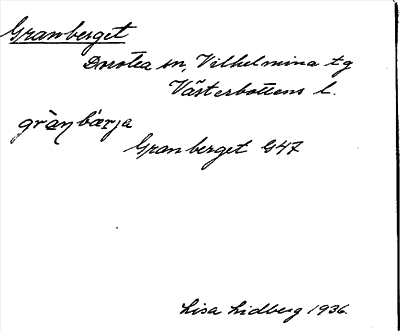 Granberget
Dorotea sn, Vilhelmina tg
Västerbottens l.
gràn bǽrja
Granberget G47
Lisa Lidberg 1936.